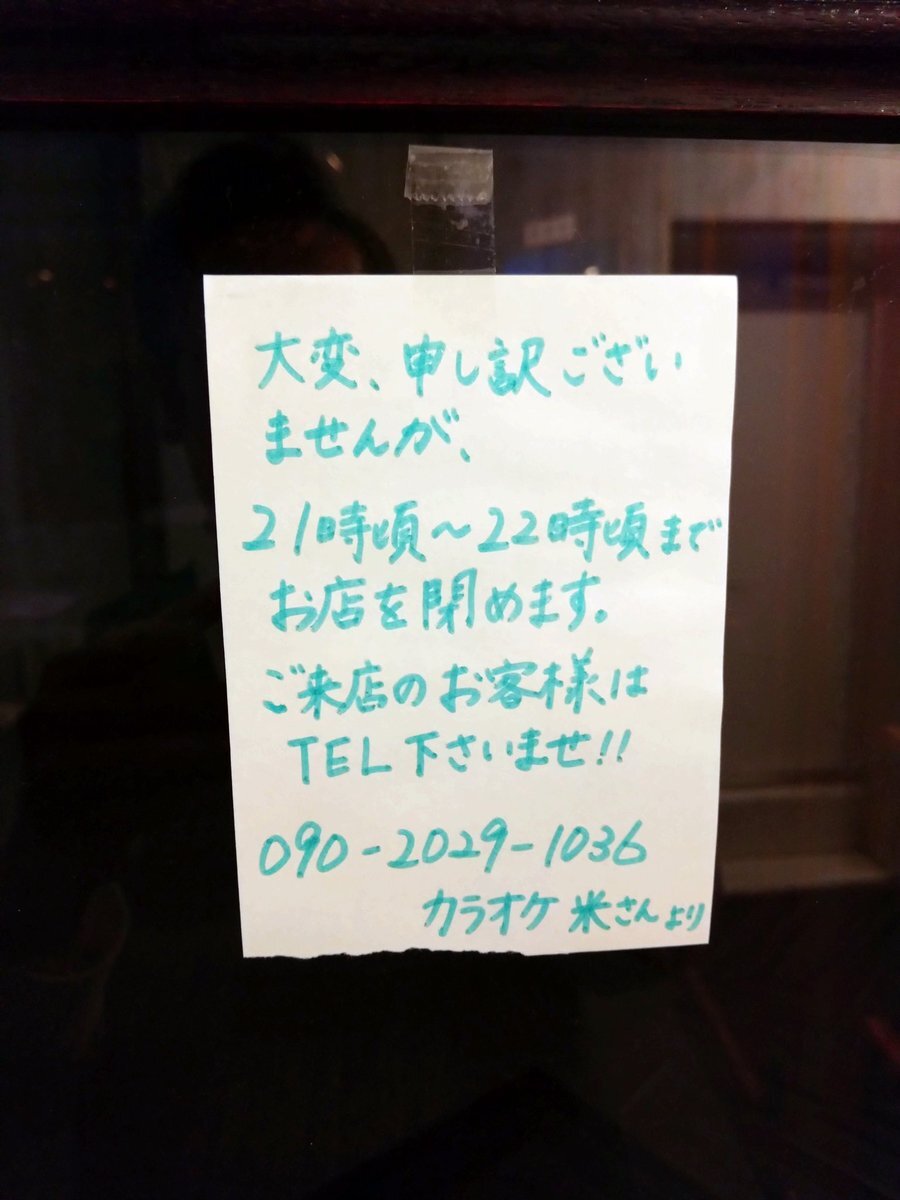 大変、申し訳ござい
ませんが、
21時頃～22時頃まで
お店を閉めます。
ご来店のお客様は
TEL下さいませ!!
090-2029-1036
カラオケ 米さんより